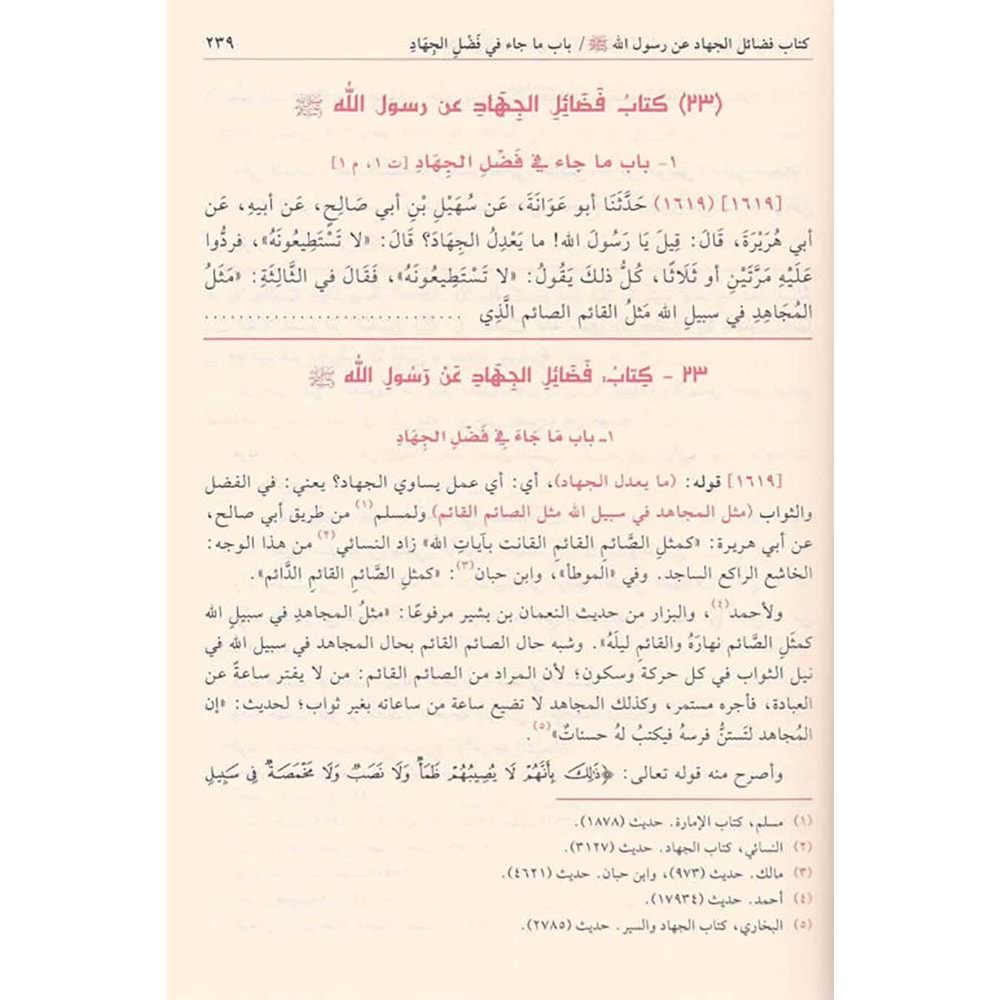 كتاب فضائل الجهاد عن رسول الله ﷺ / باب ما جاء في فَضْلِ الجِهَادِ ٢٣٩
(٢٣) كتابُ فَضَائِلِ الجِهَادِ عن رسول الله ﷺ
١- باب ما جاء في فَضْلِ الجِهَادِ [ت ١، م ١]
[١٦١٩] (١٦١٩) حَدَّثَنَا أبو عَوَانَةَ، عَن سُهَيْلِ بْنِ أبي صَالِحٍ، عَن أبيهِ، عَن
أبي هُرَيْرَةَ، قَالَ: قِيلَ يَا رَسُولَ الله! ما يَعْدِلُ الجِهَادَ؟ قَالَ: «لا تَسْتَطِيعُونَهُ»، فردُّوا
عَلَيْهِ مَرَّتَيْنِ أو ثَلَاثًا، كُلُّ ذلكَ يَقُولُ: «لا تَسْتَطِيعُونَهُ»، فَقَالَ في الثَّالِثَةِ: «مَثَلُ
المُجَاهِدِ في سبيلِ الله مَثلُ القائم الصائم الَّذِي ..............................
٢٣ - كِتابُ: فَضَائِلِ الجِهَادِ عَنْ رَسُولِ اللهِ ﷺ
١ـ باب مَا جَاءَ فِي فَضْلِ الجِهَادِ
[١٦١٩] قوله: (ما يعدل الجهاد)، أي: أي عمل يساوي الجهاد؟ يعني: في الفضل
والثواب (مثل المجاهد في سبيل الله مثل الصائم القائم) ولمسلم(١) من طريق أبي صالح،
عن أبي هريرة: «كمثلِ الصَّائمِ القائمِ القانت بآياتِ الله» زاد النسائي(٢) من هذا الوجه:
الخاشع الراكع الساجد. وفي «الموطأ»، وابن حبان(٣): «كمثلِ الصَّائمِ القائمِ الدَّائم».
ولأحمد(٤)، والبزار من حديث النعمان بن بشير مرفوعًا: «مثلُ المجاهدِ في سبيلِ الله
كمثَلِ الصَّائم نهارَهُ والقائمِ ليلَهُ». وشبه حال الصائم القائم بحال المجاهد في سبيل الله في
نيل الثواب في كل حركة وسكون؛ لأن المراد من الصائم القائم: من لا يفتر ساعةً عن
العبادة، فأجره مستمر، وكذلك المجاهد لا تضيع ساعة من ساعاته بغير ثواب؛ لحديث: «إن
المُجاهد لتَستنُّ فرسهُ فيكتبُ لهُ حسناتٌ»(٥).
وأصرح منه قوله تعالى: ﴿ذَلِكَ بِأَنَّهُمْ لَا يُصِيبُهُمْ ظَمَأٌ وَلَا نَصَبٌ وَلَا مَخْمَصَةٌ فِي سَبِيلِ
(١) مسلم، كتاب الإمارة. حديث (١٨٧٨).
(٢) النسائي، كتاب الجهاد. حديث (٣١٢٧).
(٣) مالك. حديث (٩٧٣)، وابن حبان. حديث (٤٦٢١).
(٤) أحمد. حديث (١٧٩٣٤).
(٥) البخاري، كتاب الجهاد والسير. حديث (٢٧٨٥).